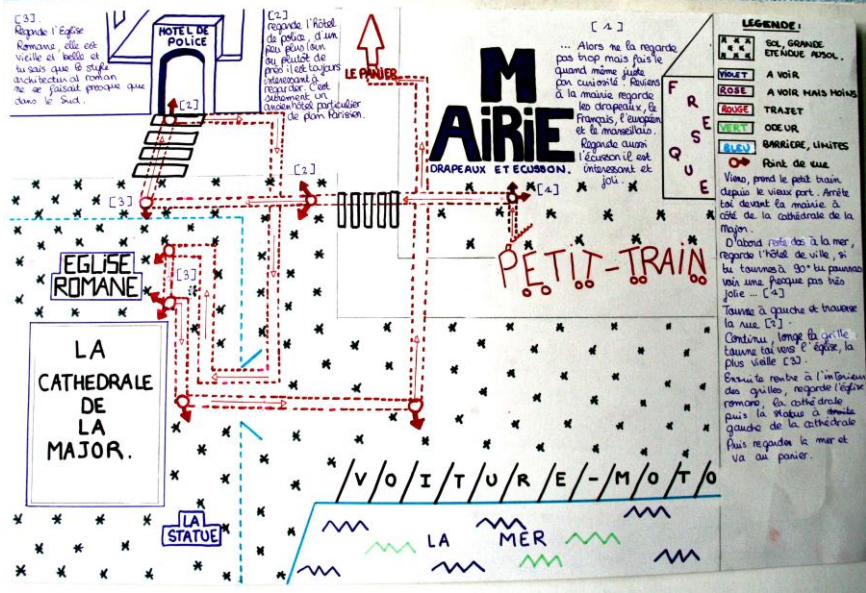 [3].
Regarde l'Eglise
Romane, elle est
vieille et belle et
tu sais que le style
architectural roman
ne se faisait presque que
dans le Sud.
HOTEL DE
POLICE
[2]
regarde l'hôtel
de police, d'un
peu plus loin
ou plutôt de
près il est toujours
interessant à
regarder. C'est
surement un
ancien hôtel particulier
de plan Parisien.
[2]
LE PANIER
M
AiRiE
DRAPEAUX ET ECUSSON.
[1]
... Alors ne la regarde
pas trop mais fais le
quand même juste
par curiosité. Reviens
à la mairie regarde
les drapeaux, le
Français, l'européen
et le marseillais.
Regarde aussi
l'écusson il est
interessant et
joli.
FRESQUE
[3]
[2]
[1]
PETiT-TRAiN
EGLISE
ROMANE
[3]
LA
CATHEDRALE
DE
LA
MAJOR.
LA
STATUE
VOITURE-MOTO
LA MER
LEGENDE:
SOL, GRANDE
ETENDUE AU SOL.
VIOLET A VOIR
ROSE A VOIR MAIS MOINS
ROUGE TRAJET
VERT ODEUR
BLEU BARRIERE, LIMITES
Point de vue
Viens, prend le petit train
depuis le vieux port. Arrête
toi devant la mairie à
côté de la cathédrale de la
Major.
D'abord reste dos à la mer,
regarde l'hôtel de ville, si
tu tournes à 90° tu pourras
voir une fresque pas très
jolie ... [1]
Tourne à gauche et traverse
la rue [2].
Continu, longe la grille
tourne toi vers l'église, la
plus vieille [3].
Ensuite rentre à l'interieur
des grilles, regarde l'église
romane, la cathédrale
puis la statue à droite
gauche de la cathédrale
Puis regarde la mer et
va au panier.